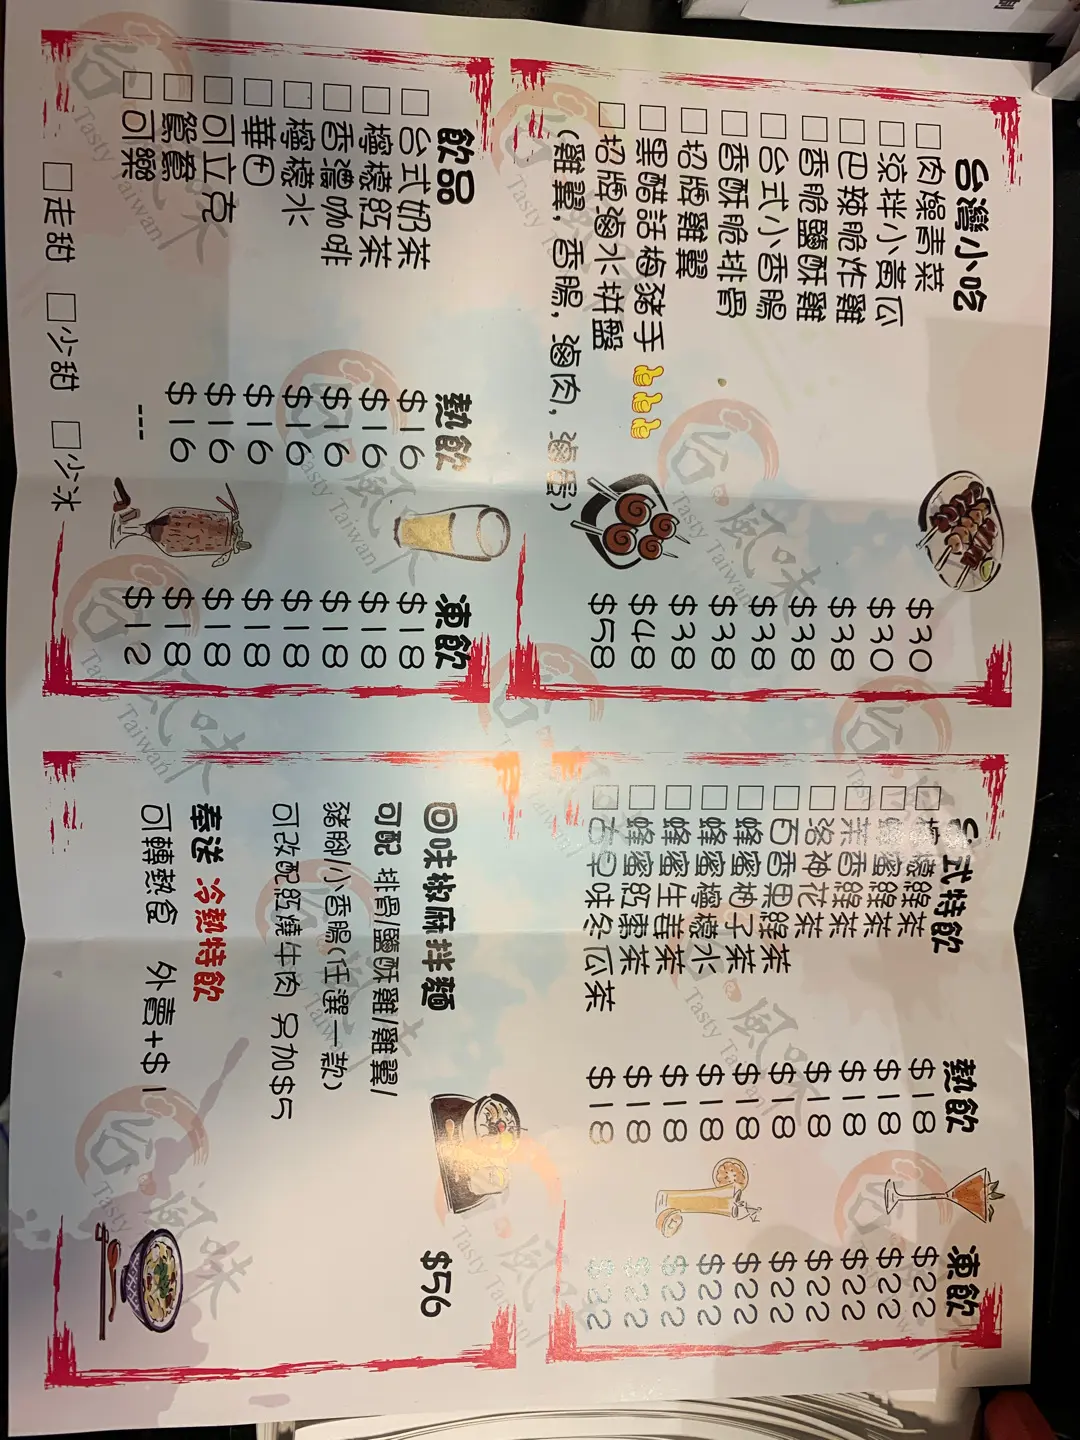 台灣小吃
肉燥青菜 $30
涼拌小黃瓜 $30
巴辣脆炸雞 $38
香脆鹽酥雞 $38
台式小香腸 $38
香酥脆排骨 $38
招牌雞翼 $38
黑醋話梅豬手 👍👍👍 $48
招牌滷水拼盤 $58
(雞翼, 香腸, 滷肉, 滷蛋)
飲品 熱飲 凍飲
台式奶茶 $16 $18
檸檬紅茶 $16 $18
香濃咖啡 $16 $18
檸檬水 $16 $18
華田 $16 $18
可立克 $16 $18
鴛鴦 $16 $18
可樂 --- $12
走甜 少甜 少冰
台式特飲 熱飲 凍飲
檸檬綠茶 $18 $22
蜂蜜綠茶 $18 $22
茉香綠茶 $18 $22
洛神花茶 $18 $22
百香果綠茶 $18 $22
蜂蜜柚子茶 $18 $22
蜂蜜檸檬水 $18 $22
蜂蜜生薑茶 $18 $22
蜂蜜紅棗茶 $18 $22
古早味冬瓜茶 $18 $22
回味椒麻拌麵 $56
可配 排骨/鹽酥雞/雞翼/
豬腳/小香腸(任選一款)
可改配紅燒牛肉 另加$5
奉送 冷熱特飲
可轉熱食 外賣+$1
台風味
Tasty Taiwan